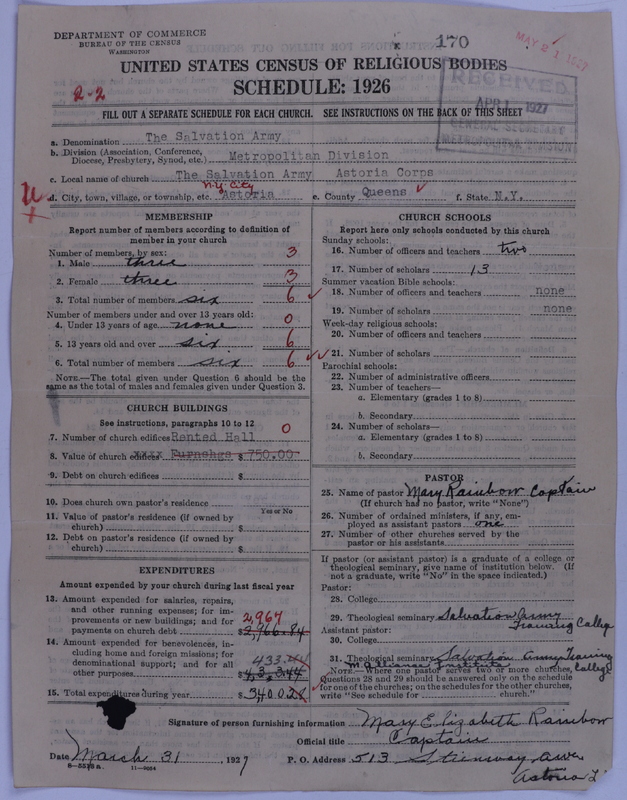 DEPARTMENT OF COMMERCE
BUREAU OF THE CENSUS
WASHINGTON
170
MAY 21 1927
UNITED STATES CENSUS OF RELIGIOUS BODIES
SCHEDULE: 1926
2-2
RECEIVED
APR 1 1927
GENERAL SECRETARY
METROPOLITAN DIVISION
FILL OUT A SEPARATE SCHEDULE FOR EACH CHURCH. SEE INSTRUCTIONS ON THE BACK OF THIS SHEET
a. Denomination The Salvation Army
b. Division (Association, Conference, Diocese, Presbytery, Synod, etc.) Metropolitan Division
c. Local name of church The Salvation Army Astoria Corps
N.Y. City
d. City, town, village, or township, etc. Astoria e. County Queens f. State N.Y.
MEMBERSHIP
Report number of members according to definition of
member in your church
Number of members, by sex:
1. Male three 3
2. Female three 3
3. Total number of members six 6
Number of members under and over 13 years old:
4. Under 13 years of age none 0
5. 13 years old and over six 6
6. Total number of members six 6
NOTE.—The total given under Question 6 should be the
same as the total of males and females given under Question 3.
CHURCH BUILDINGS
See instructions, paragraphs 10 to 12
7. Number of church edifices Rented Hall 0
8. Value of church edifices Furnshgs $ 750.00
9. Debt on church edifices $
10. Does church own pastor's residence
Yes or No
11. Value of pastor's residence (if owned by
church) $
12. Debt on pastor's residence (if owned by
church) $
EXPENDITURES
Amount expended by your church during last fiscal year
13. Amount expended for salaries, repairs,
and other running expenses; for im-
provements or new buildings; and for
payments on church debt $ 2,966.84
2967
14. Amount expended for benevolences, in-
cluding home and foreign missions; for
denominational support; and for all
other purposes $ 433.44
433.44
15. Total expenditures during year $ 3,400.28
CHURCH SCHOOLS
Report here only schools conducted by this church
Sunday schools:
16. Number of officers and teachers two
17. Number of scholars 13
Summer vacation Bible schools:
18. Number of officers and teachers none
19. Number of scholars none
Week-day religious schools:
20. Number of officers and teachers
21. Number of scholars
Parochial schools:
22. Number of administrative officers
23. Number of teachers—
a. Elementary (grades 1 to 8)
b. Secondary
24. Number of scholars—
a. Elementary (grades 1 to 8)
b. Secondary
PASTOR
25. Name of pastor Mary Rainbow Captain
(If church had no pastor, write "None")
26. Number of ordained ministers, if any, em-
ployed as assistant pastors one
27. Number of other churches served by the
pastor or his assistants
If pastor (or assistant pastor) is a graduate of a college or
theological seminary, give name of institution below. (If
not a graduate, write "No" in the space indicated.)
Pastor:
28. College
29. Theological seminary Salvation Army
Training College
Assistant pastor:
30. College
31. Theological seminary Salvation Army Training
College
NOTE.—When one pastor serves two or more churches,
Questions 28 and 29 should be answered only on the schedule
for one of the churches; on the schedules for the other churches,
write "See schedule for church."
Signature of person furnishing information Mary Elizabeth Rainbow
Official title Captain
Date March 31 1927 P. O. Address 513 Steinway ave
Astoria L
11—9064